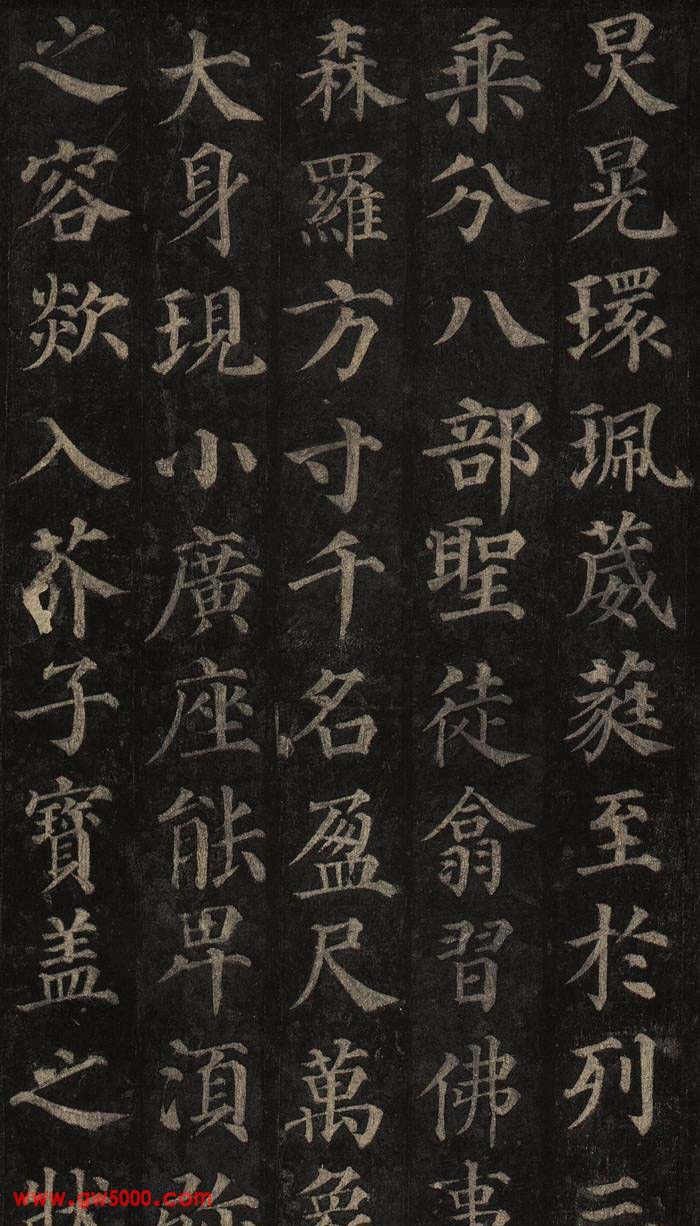 炅晃環珮葳蕤至於列三
乘分八部聖徒翕習佛事
森羅方寸千名盈尺萬象
大身現小廣座能卑須弥
之容歘入芥子寶盖之狀
www.gw5000.com